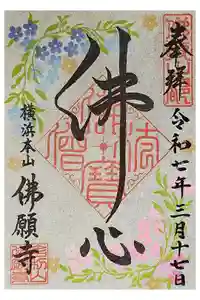 奉拝
令和七年三月十七日
佛心
佛法僧寳
横浜本山
佛願寺